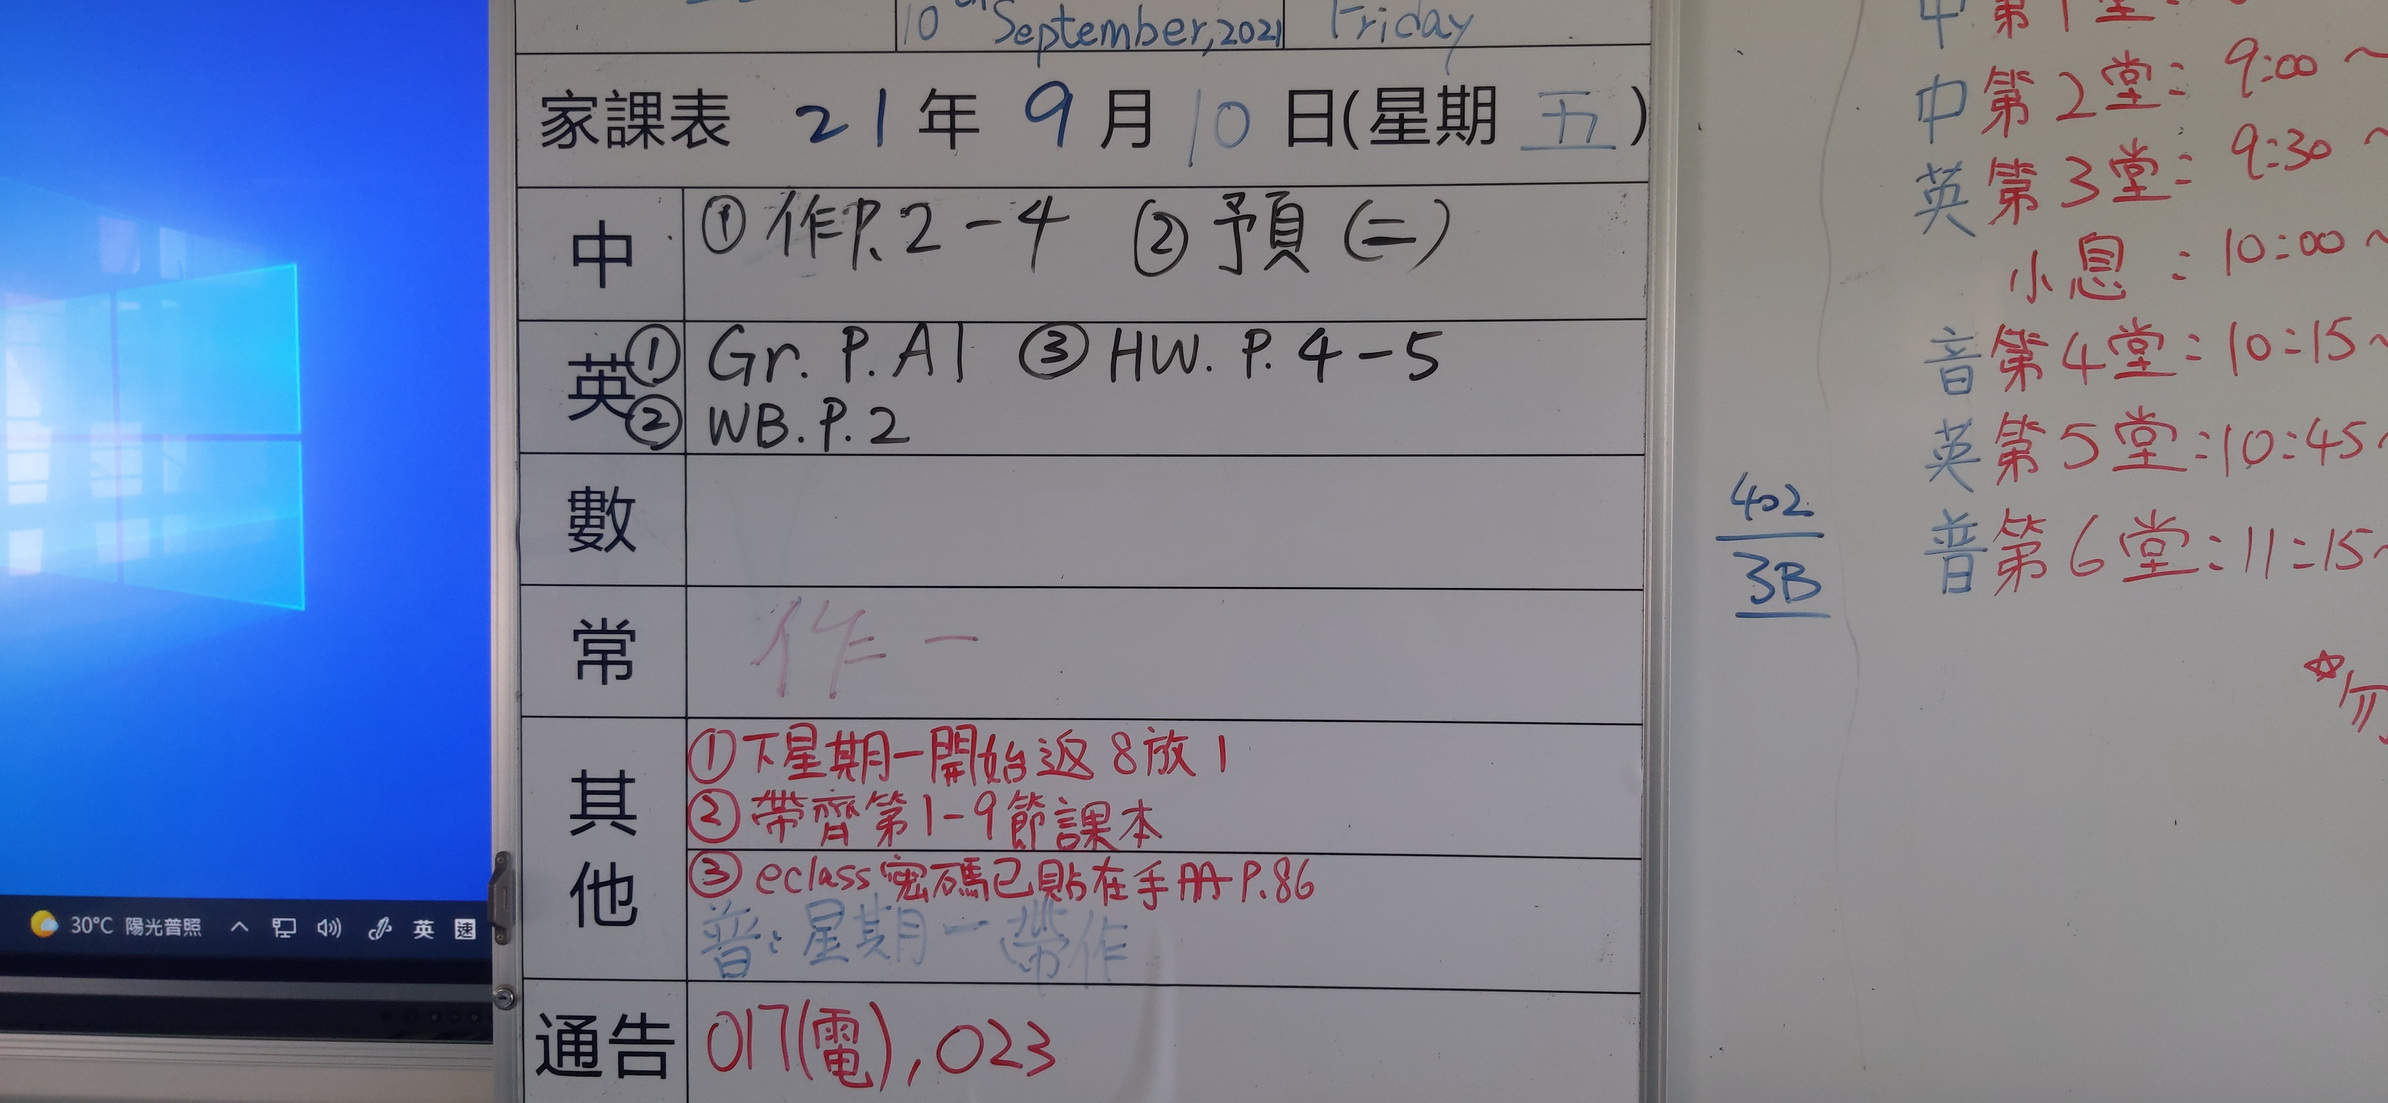 10th September, 2021 Friday
家課表 21年 9月 10日(星期 五)
中 ①作P.2-4 ②預(二)
英 ① Gr. P.A1 ③ HW. P.4-5
② WB. P.2
數
常 作一
其他 ①下星期一開始返8放1
②帶齊第1-9節課本
③eclass密碼已貼在手冊P.86
普:星期一帶作
通告 017(電), 023
402
3B
中 第1堂:
中 第2堂: 9:00 ~
英 第3堂: 9:30 ~
小息 : 10:00 ~
音 第4堂: 10:15 ~
英 第5堂: 10:45 ~
普 第6堂: 11:15 ~
☆勿
30°C 陽光普照 英 速